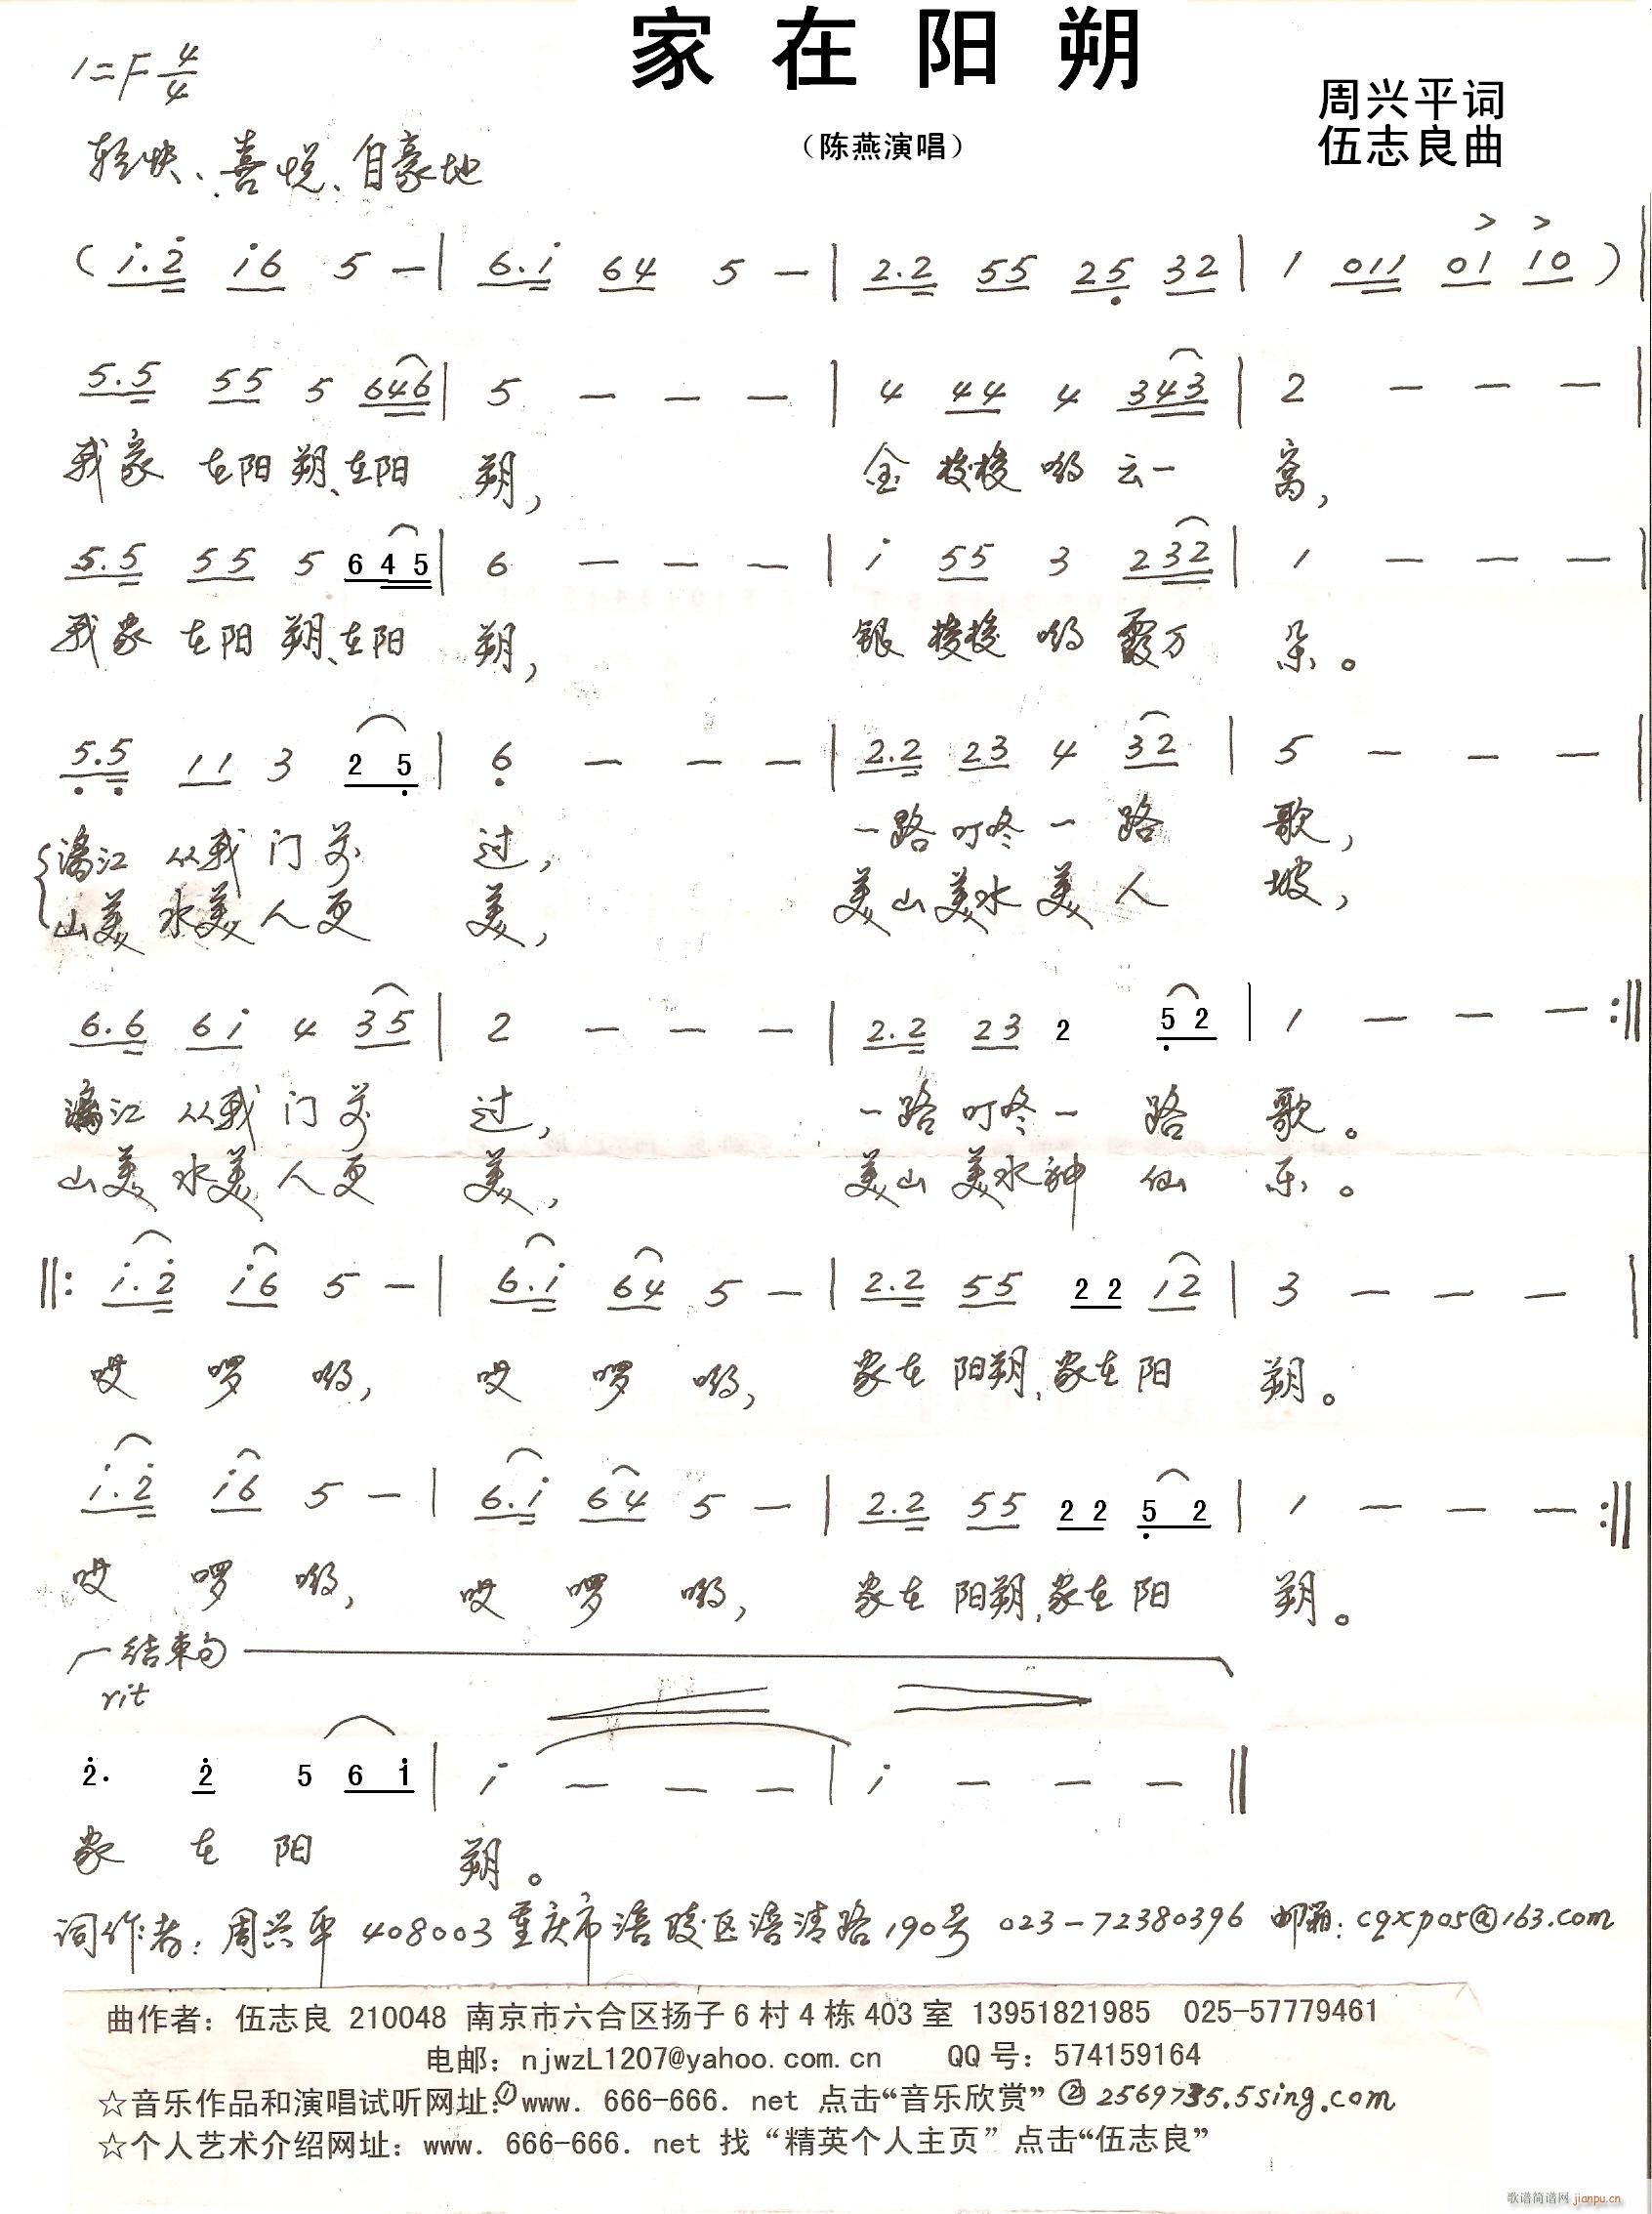 家在阳朔
1=F 4/4
周兴平词
伍志良曲
（陈燕演唱）
轻快、喜悦、自豪地
( i.2 i6 5 — | 6.i 64 5 — | 2.2 55 25 32 | 1 011 01 10 ) |
5.5 55 5 646 | 5 — — — | 4 44 4 343 | 2 — — — |
我家 在阳 朔、在阳 朔, 金梭梭 哟 云一 窝,
5.5 55 5 645 | 6 — — — | i 55 3 232 | 1 — — — |
我家 在阳 朔、在阳 朔, 银梭梭 哟 霞万 朵。
5.5 11 3 2 5 | 6 — — — | 2.2 23 4 32 | 5 — — — |
漓江 从我 门 前 过, 一路 叮咚 一 路 歌,
山美 水美 人更 美, 美山 美水 美 人 坡,
6.6 6i 4 35 | 2 — — — | 2.2 23 2 52 | 1 — — — :||
漓江 从我 门 前 过, 一路 叮咚 一 路 歌。
山美 水美 人更 美, 美山 美水 神 仙 乐。
||: i.2 i6 5 — | 6.i 64 5 — | 2.2 55 22 12 | 3 — — — |
哎 啰 哟, 哎 啰 哟, 家在 阳朔, 家在 阳 朔。
i.2 i6 5 — | 6.i 64 5 — | 2.2 55 22 5 2 | 1 — — — :||
哎 啰 哟, 哎 啰 哟, 家在 阳朔, 家在 阳 朔。
结束句
rit
2. 2 5 6 i | i — — — | i — — — ||
家 在 阳 朔。
词作者：周兴平 408003 重庆市涪陵区涪清路190号 023-72380396 邮箱：cqxp05@163.com
曲作者：伍志良 210048 南京市六合区扬子6村4栋403室 13951821985 025-57779461
电邮：njwzL1207@yahoo.com.cn QQ号：574159164
☆音乐作品和演唱试听网址：①www. 666-666. net 点击“音乐欣赏” ②2569735.5sing.com
☆个人艺术介绍网址：www. 666-666. net 找“精英个人主页”点击“伍志良”
歌谱简谱网 jianpu.cn